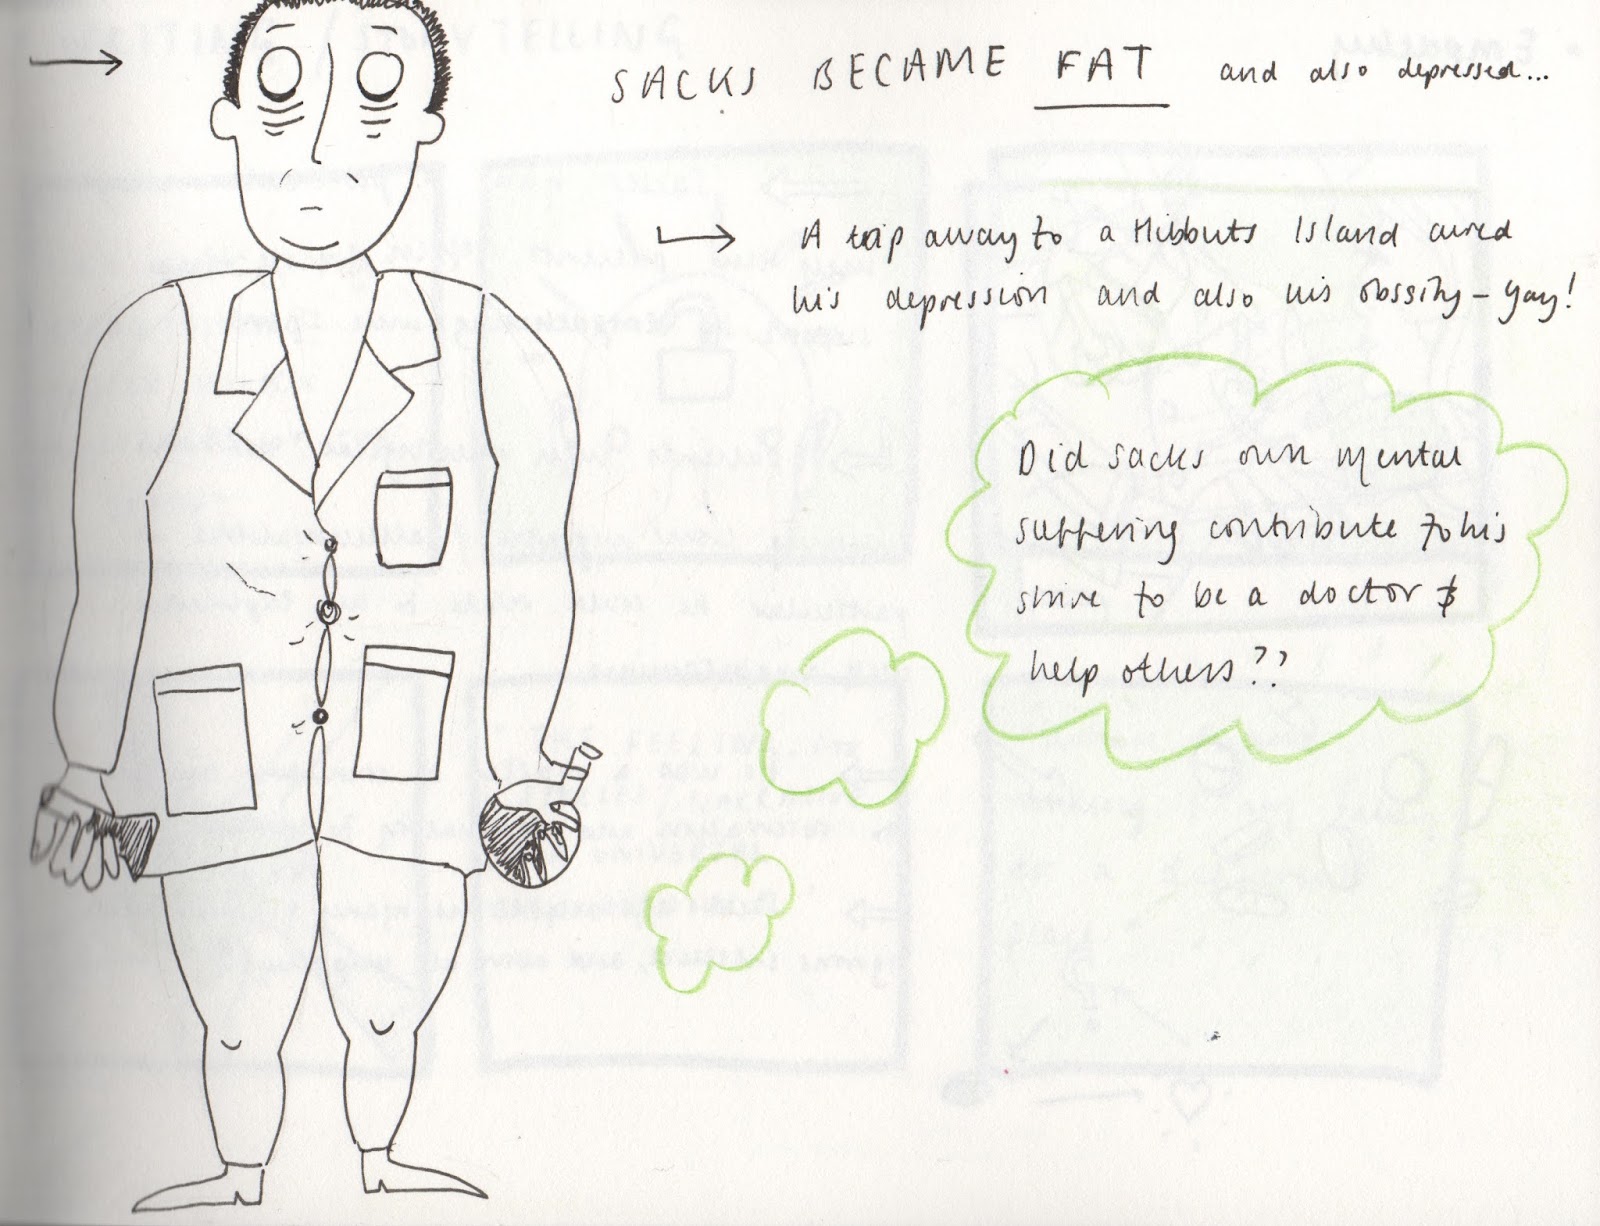 SACKS BECAME FAT and also depressed...
A trip away to a Hibbuts Island cured
his depression and also his obssity - yay!
Did sacks own mental
suffering contribute to his
strive to be a doctor &
help others??